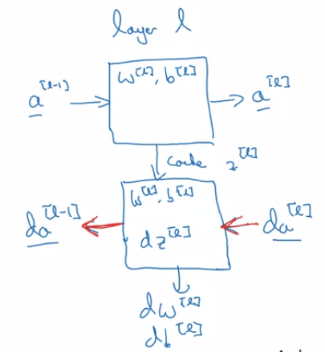 layer l
a^[l-1] → w^[l], b^[l] → a^[l]
cache z^[l]
w^[l], b^[l]
da^[l-1] ← dz^[l] ← da^[l]
dw^[l]
db^[l]